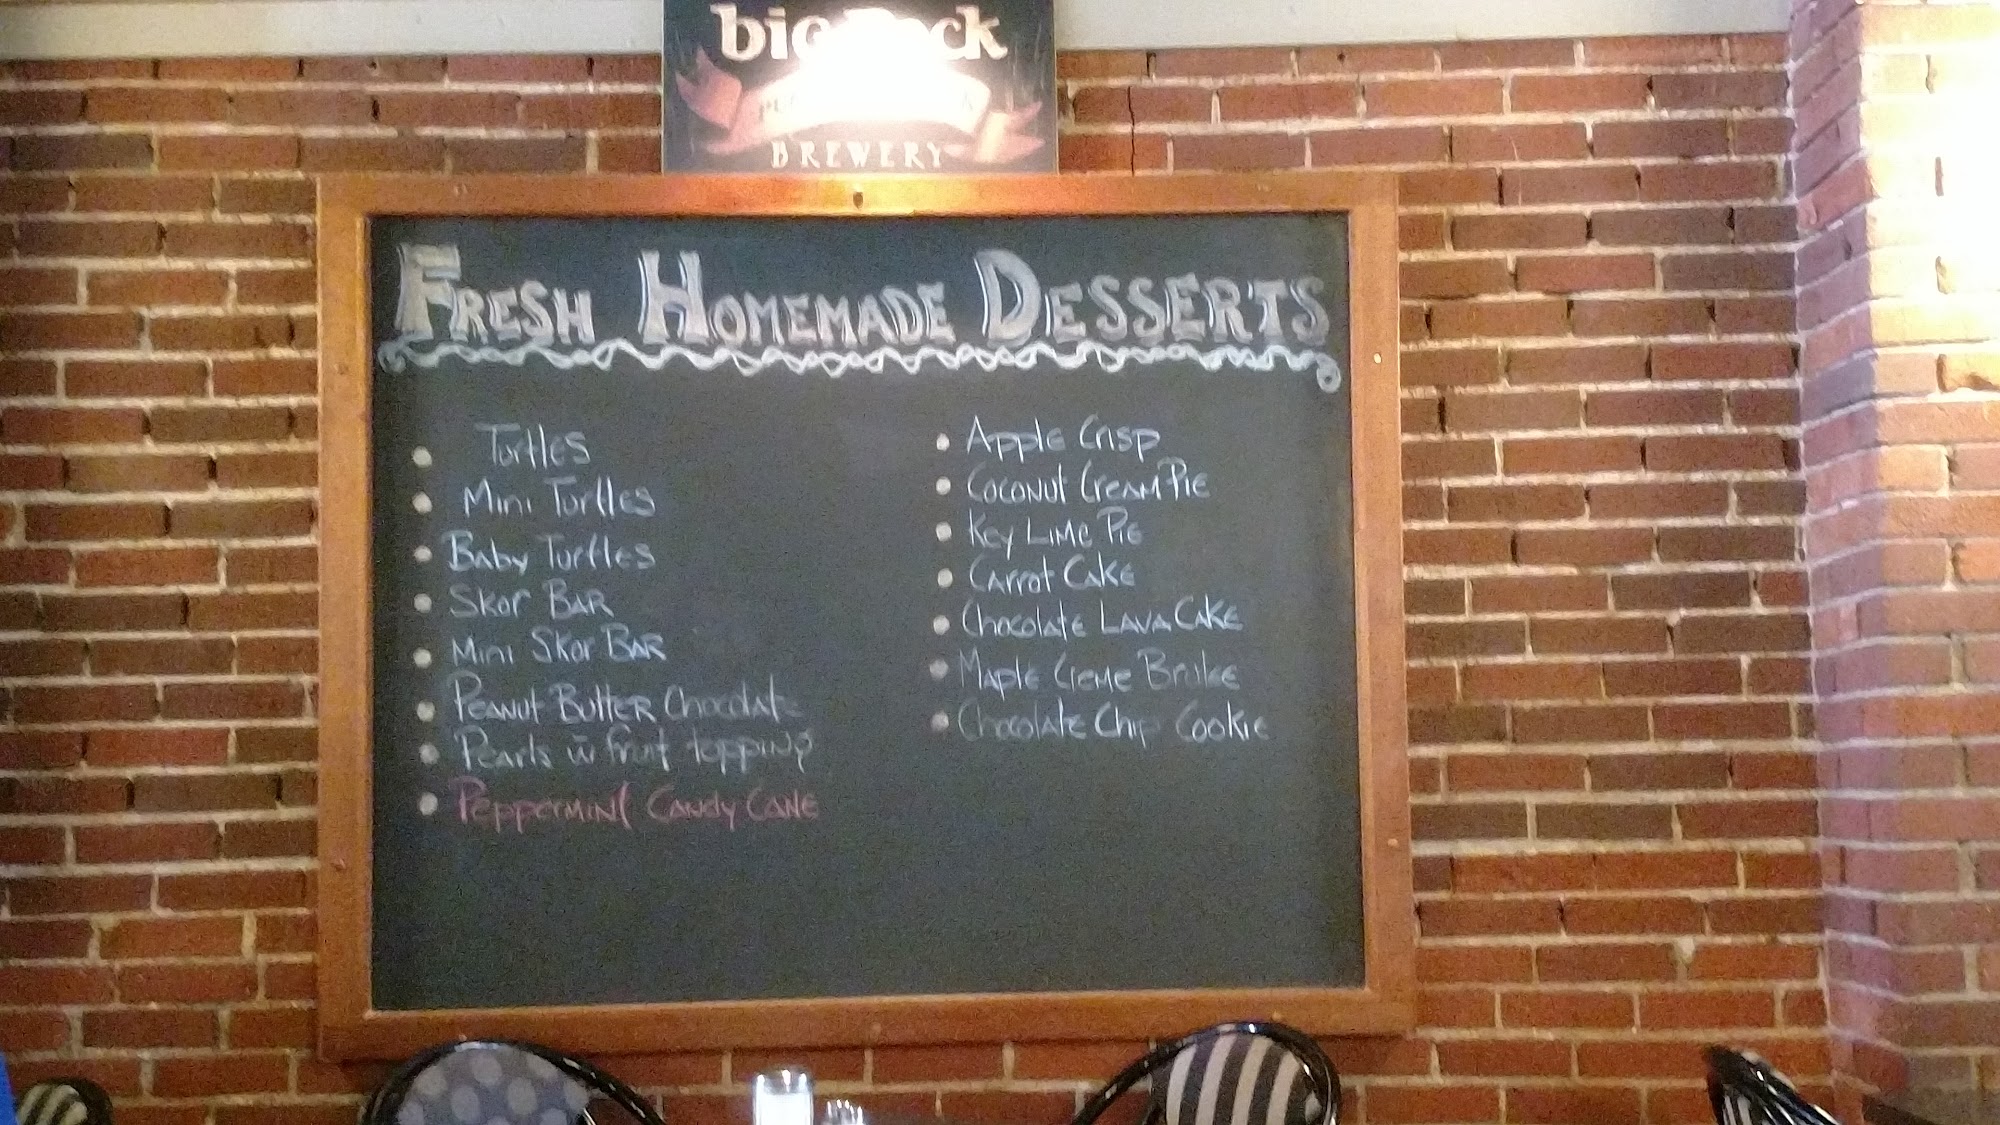 big Rock
BREWERY
FRESH HOMEMADE DESSERTS
Turtles
Mini Turtles
Baby Turtles
Skor BAR
Mini Skor BAR
PEANUT BUTTER Chocolate
Pearls w fruit topping
PeppermiNt CANdy CANE
Apple Crisp
Coconut CreAM PiE
Key Lime Pie
Carrot CAKE
Chocolate LAVA CAKE
Maple Creme Brulee
Chocolate Chip Cookie